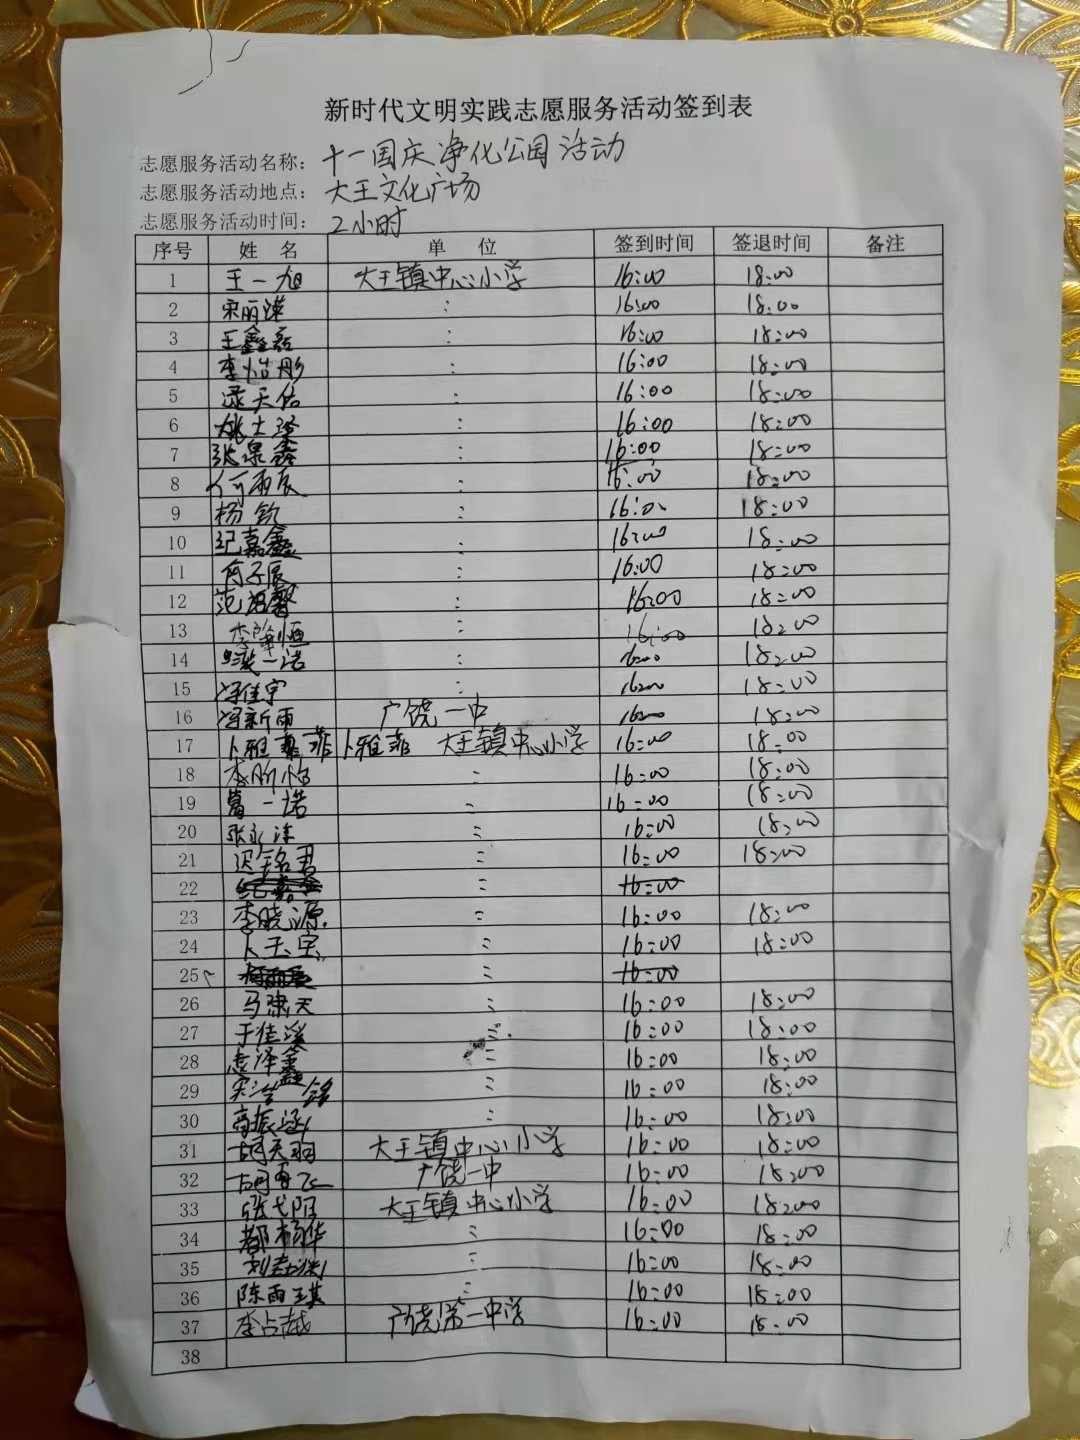 新时代文明实践志愿服务活动签到表
志愿服务活动名称: 十一国庆净化公园活动
志愿服务活动地点: 大王文化广场
志愿服务活动时间: 2小时
序号 姓名 单位 签到时间 签退时间 备注
1 王一旭 大王镇中心小学 16:00 18:00
2 宋丽洋 : 16:00 18:00
3 王鑫磊 : 16:00 18:00
4 李怡彤 : 16:00 18:00
5 天佑 : 16:00 18:00
6 姚士 : 16:00 18:00
7 张泉鑫 : 16:00 18:00
8 何雨辰 : 16:00 18:00
9 杨钦 : 16:00 18:00
10 纪嘉鑫 : 16:00 18:00
11 子辰 : 16:00 18:00
12 范馨 : 16:00 18:00
13 李恒 : 16:00 18:00
14 一诺 : 16:00 18:00
15 冯佳宇 : 16:00 18:00
16 冯新雨 广饶一中 16:00 18:00
17 卜雅菲 卜雅菲 大王镇中心小学 16:00 18:00
18 李昕怡 : 16:00 18:00
19 葛一诺 : 16:00 18:00
20 张永 : 16:00 18:00
21 迟铭君 : 16:00 18:00
22 纪嘉鑫 : 16:00
23 李晓源 : 16:00 18:00
24 卜玉宝 : 16:00 18:00
25 : 16:00
26 马啸天 : 16:00 18:00
27 于佳溪 : 16:00 18:00
28 泽鑫 : 16:00 18:00
29 宋浩铭 : 16:00 18:00
30 高振涵 : 16:00 18:00
31 胡天羽 大王镇中心小学 16:00 18:00
32 胡 广饶一中 16:00 18:00
33 张 大王镇中心小学 16:00 18:00
34 都杨华 : 16:00 18:00
35 刘 : 16:00 18:00
36 陈雨琪 : 16:00 18:00
37 李占越 广饶第一中学 16:00 18:00
38